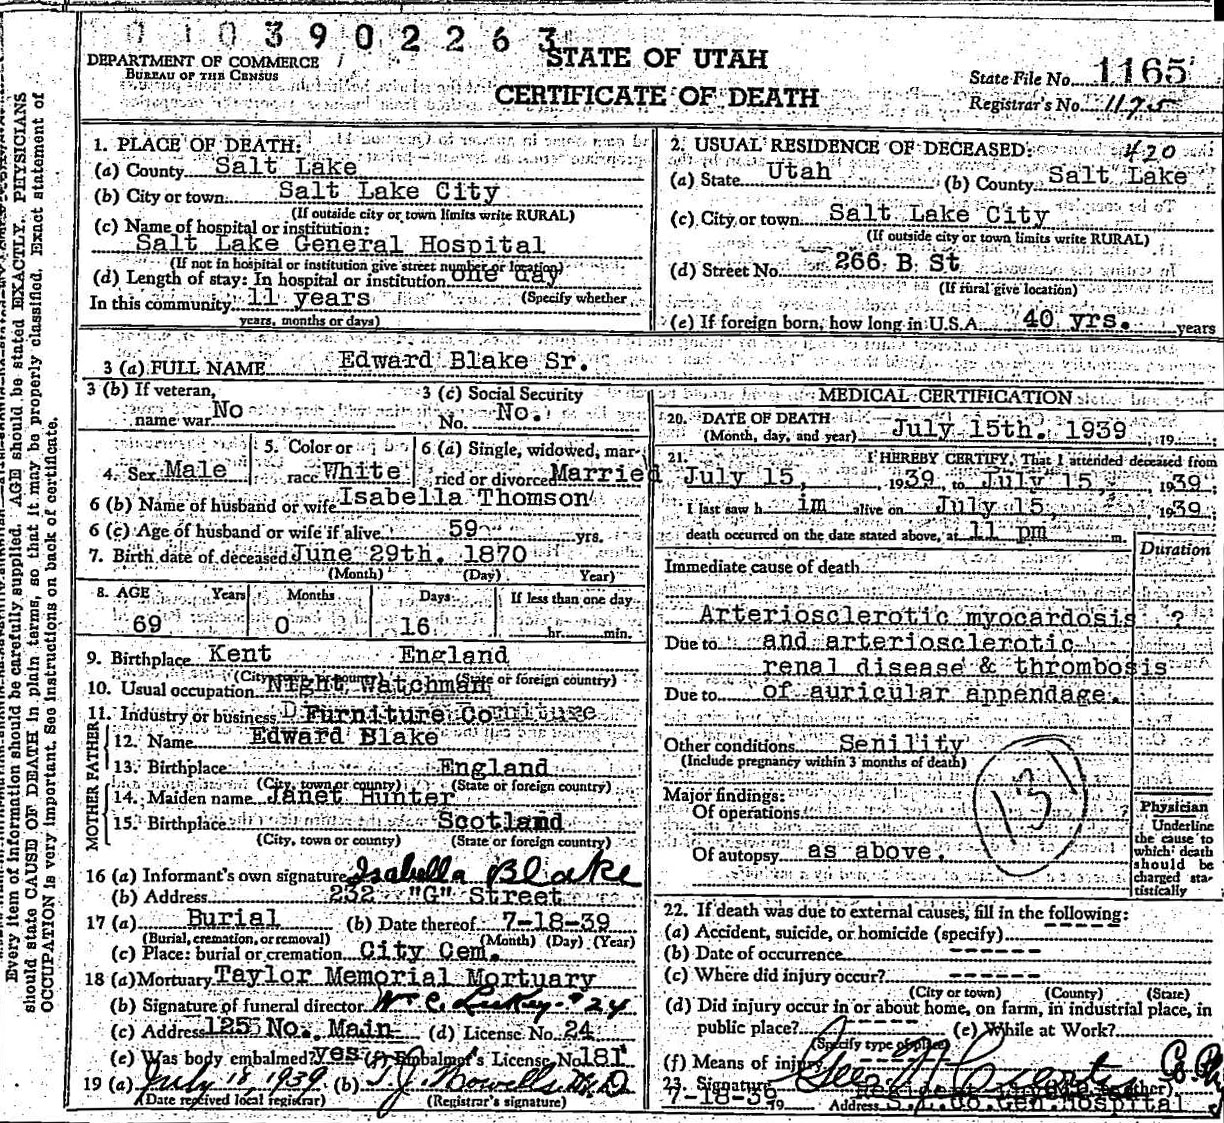 0 1 0 3 9 0 2 2 6 3
DEPARTMENT OF COMMERCE
BUREAU OF THE CENSUS
STATE OF UTAH
CERTIFICATE OF DEATH
State File No. 1165
Registrar's No. 1175
1. PLACE OF DEATH:
(a) County Salt Lake
(b) City or town Salt Lake City
(If outside city or town limits write RURAL)
(c) Name of hospital or institution:
Salt Lake General Hospital
(If not in hospital or institution give street number or location)
(d) Length of stay: In hospital or institution one day
In this community 11 years (Specify whether
years, months or days)
2. USUAL RESIDENCE OF DECEASED: 420
(a) State Utah (b) County Salt Lake
(c) City or town Salt Lake City
(If outside city or town limits write RURAL)
(d) Street No. 266 B St
(If rural give location)
(e) If foreign born, how long in U.S.A. 40 yrs. years
3 (a) FULL NAME Edward Blake Sr.
3 (b) If veteran,
name war No
3 (c) Social Security
No. No.
4. Sex Male
5. Color or
race White
6 (a) Single, widowed, mar-
ried or divorced Married
6 (b) Name of husband or wife Isabella Thomson
6 (c) Age of husband or wife if alive 59 yrs.
7. Birth date of deceased June 29th. 1870
(Month) (Day) Year)
8. AGE Years Months Days If less than one day
69 0 16 hr. min.
9. Birthplace Kent England
(City, town or county) (State or foreign country)
10. Usual occupation Night Watchman
11. Industry or business Furniture Co
FATHER
12. Name Edward Blake
13. Birthplace England
(City, town or county) (State or foreign country)
MOTHER
14. Maiden name Janet Hunter
15. Birthplace Scotland
(City, town or county) (State or foreign country)
16 (a) Informant's own signature Isabella Blake
(b) Address 232 "G" Street
17 (a) Burial (b) Date thereof 7-18-39
(Burial, cremation, or removal) (Month) (Day) (Year)
(c) Place: burial or cremation City Cem.
18 (a) Mortuary Taylor Memorial Mortuary
(b) Signature of funeral director Wm C. #24
(c) Address 125 No. Main (d) License No. 24
(e) Was body embalmed? yes (f) Embalmer's License No. 181
19 (a) July 18, 1939 (b) T J Howells M.D
(Date received local registrar) (Registrar's signature)
MEDICAL CERTIFICATION
20. DATE OF DEATH
(Month, day, and year) July 15th. 1939 , 19
21. I HEREBY CERTIFY, That I attended deceased from
July 15, , 1939, to July 15, , 1939
I last saw h im alive on July 15, 1939
death occurred on the date stated above, at 11 pm m.
Duration
Immediate cause of death
Arteriosclerotic myocardosis ?
Due to and arteriosclerotic
renal disease & thrombosis
Due to of auricular appendage.
Other conditions Senility
(Include pregnancy within 3 months of death)
131
Major findings:
Of operations
Of autopsy as above.
Physician
Underline
the cause to
which death
should be
charged sta-
tistically
22. If death was due to external causes, fill in the following:
(a) Accident, suicide, or homicide (specify) -----
(b) Date of occurrence ------
(c) Where did injury occur? ------
(City or town) (County) (State)
(d) Did injury occur in or about home, on farm, in industrial place, in
public place? ----- (e) While at Work?
(Specify type of place)
(f) Means of injury
23. Signature
7-18-39 19 Address S.L.Co.Gen.Hospital
Every item of information should be carefully supplied. AGE should be stated EXACTLY. PHYSICIANS
should state CAUSE OF DEATH in plain terms, so that it may be properly classified. Exact statement of
OCCUPATION is very important. See instructions on back of certificate.